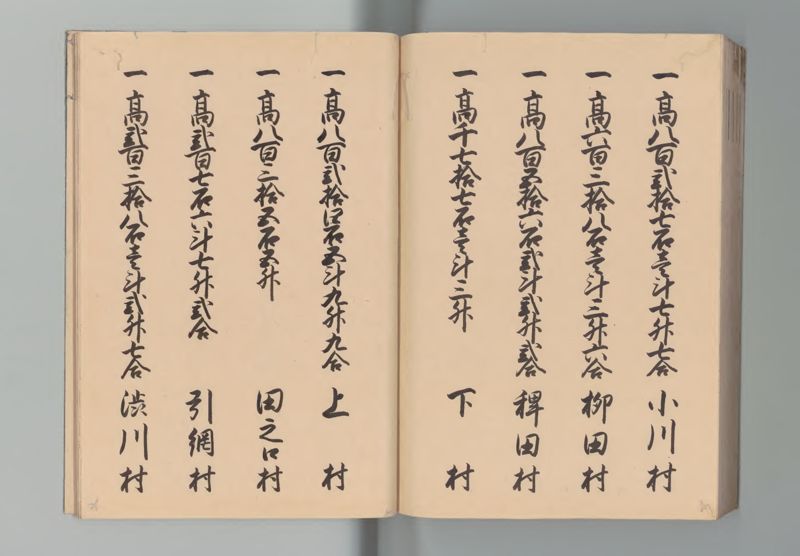 一高八百弐拾七石壱斗七升七合 小川村
一高六百三拾八石壱斗三升六合 柳田村
一高八百五拾六石弐斗弐升弐合 稗田村
一高千七拾七石壱斗三升 下村
一高八百弐拾四石五斗九升九合 上村
一高八百三拾五石五升 田之口村
一高弐百七石六斗七升弐合 引網村
一高弐百三拾八石壱斗弐升七合 渋川村